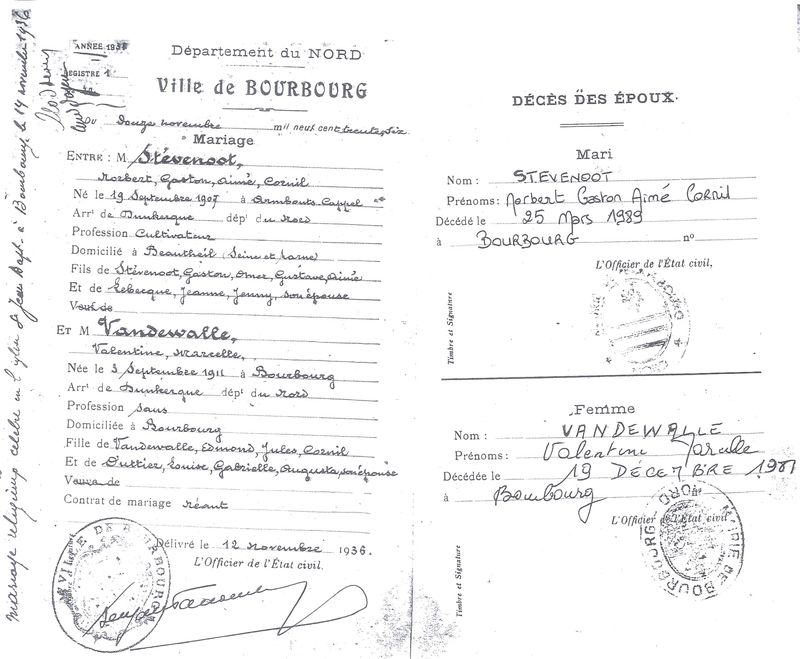 Mariage religieux célébré en l'église St Jean Bapt. à Bourbourg le 14 novembre 1936
ANNÉE 1936
REGISTRE 1
Département du NORD
Ville de BOURBOURG
Du Douze novembre mil neuf cent trente, six
Mariage
ENTRE : M Stévenoot,
Norbert, Gaston, Aimé, Cornil
Né le 19 Septembre 1907 à Armbouts-Cappel
Arrt de Dunkerque dépt du Nord
Profession Cultivateur
Domicilié à Beautheil (Seine et Marne)
Fils de Stévenoot, Gaston, Omer, Gustave, Aimé
Et de Lebecque, Jeanne, Jenny, son épouse
Veuf de
ET M Vandewalle,
Valentine, Marcelle,
Née le 3 Septembre 1911 à Bourbourg
Arrt de Dunkerque dépt du Nord
Profession sans
Domiciliée à Bourbourg
Fille de Vandewalle, Edmond, Jules, Cornil
Et de Outtier, Louise, Gabrielle, Augusta, son épouse
Veuve de
Contrat de mariage néant
Délivré le 12 novembre 1936.
L'Officier de l'État civil.
VILLE DE BOURBOURG
DÉCÈS DES ÉPOUX.
Mari
Nom : STEVENOOT
Prénoms : Norbert Gaston Aimé Cornil
Décédé le 25 Mars 1989
à BOURBOURG no
L'Officier de l'État civil,
Timbre et Signature
Femme
Nom : VANDEWALLE
Prénoms : Valentine Marcelle
Décédée le 19 DÉCEMBRE
à Bourbourg
L'Officier de l'État civil
Timbre et Signature
MAIRIE DE BOURBOURG NORD